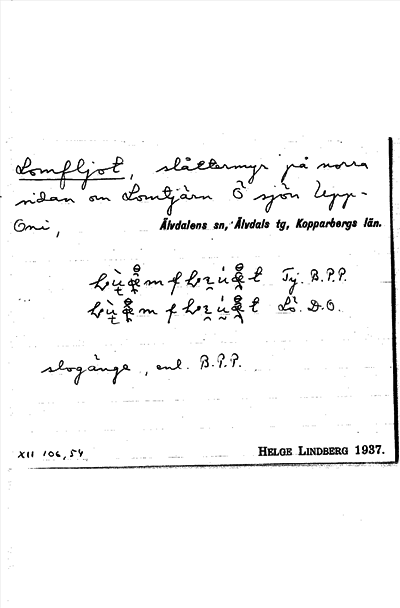 Lomfljot, slåttermyr på norra
sidan om Lomtjärn Ö sjön Upp-
Oni, Älvdalens sn, Älvdals tg, Kopparbergs län.
Tj. B.P.P.
Lö. D.O.
slogänge, enl. B.P.P.
XII 106, 54 HELGE LINDBERG 1937.